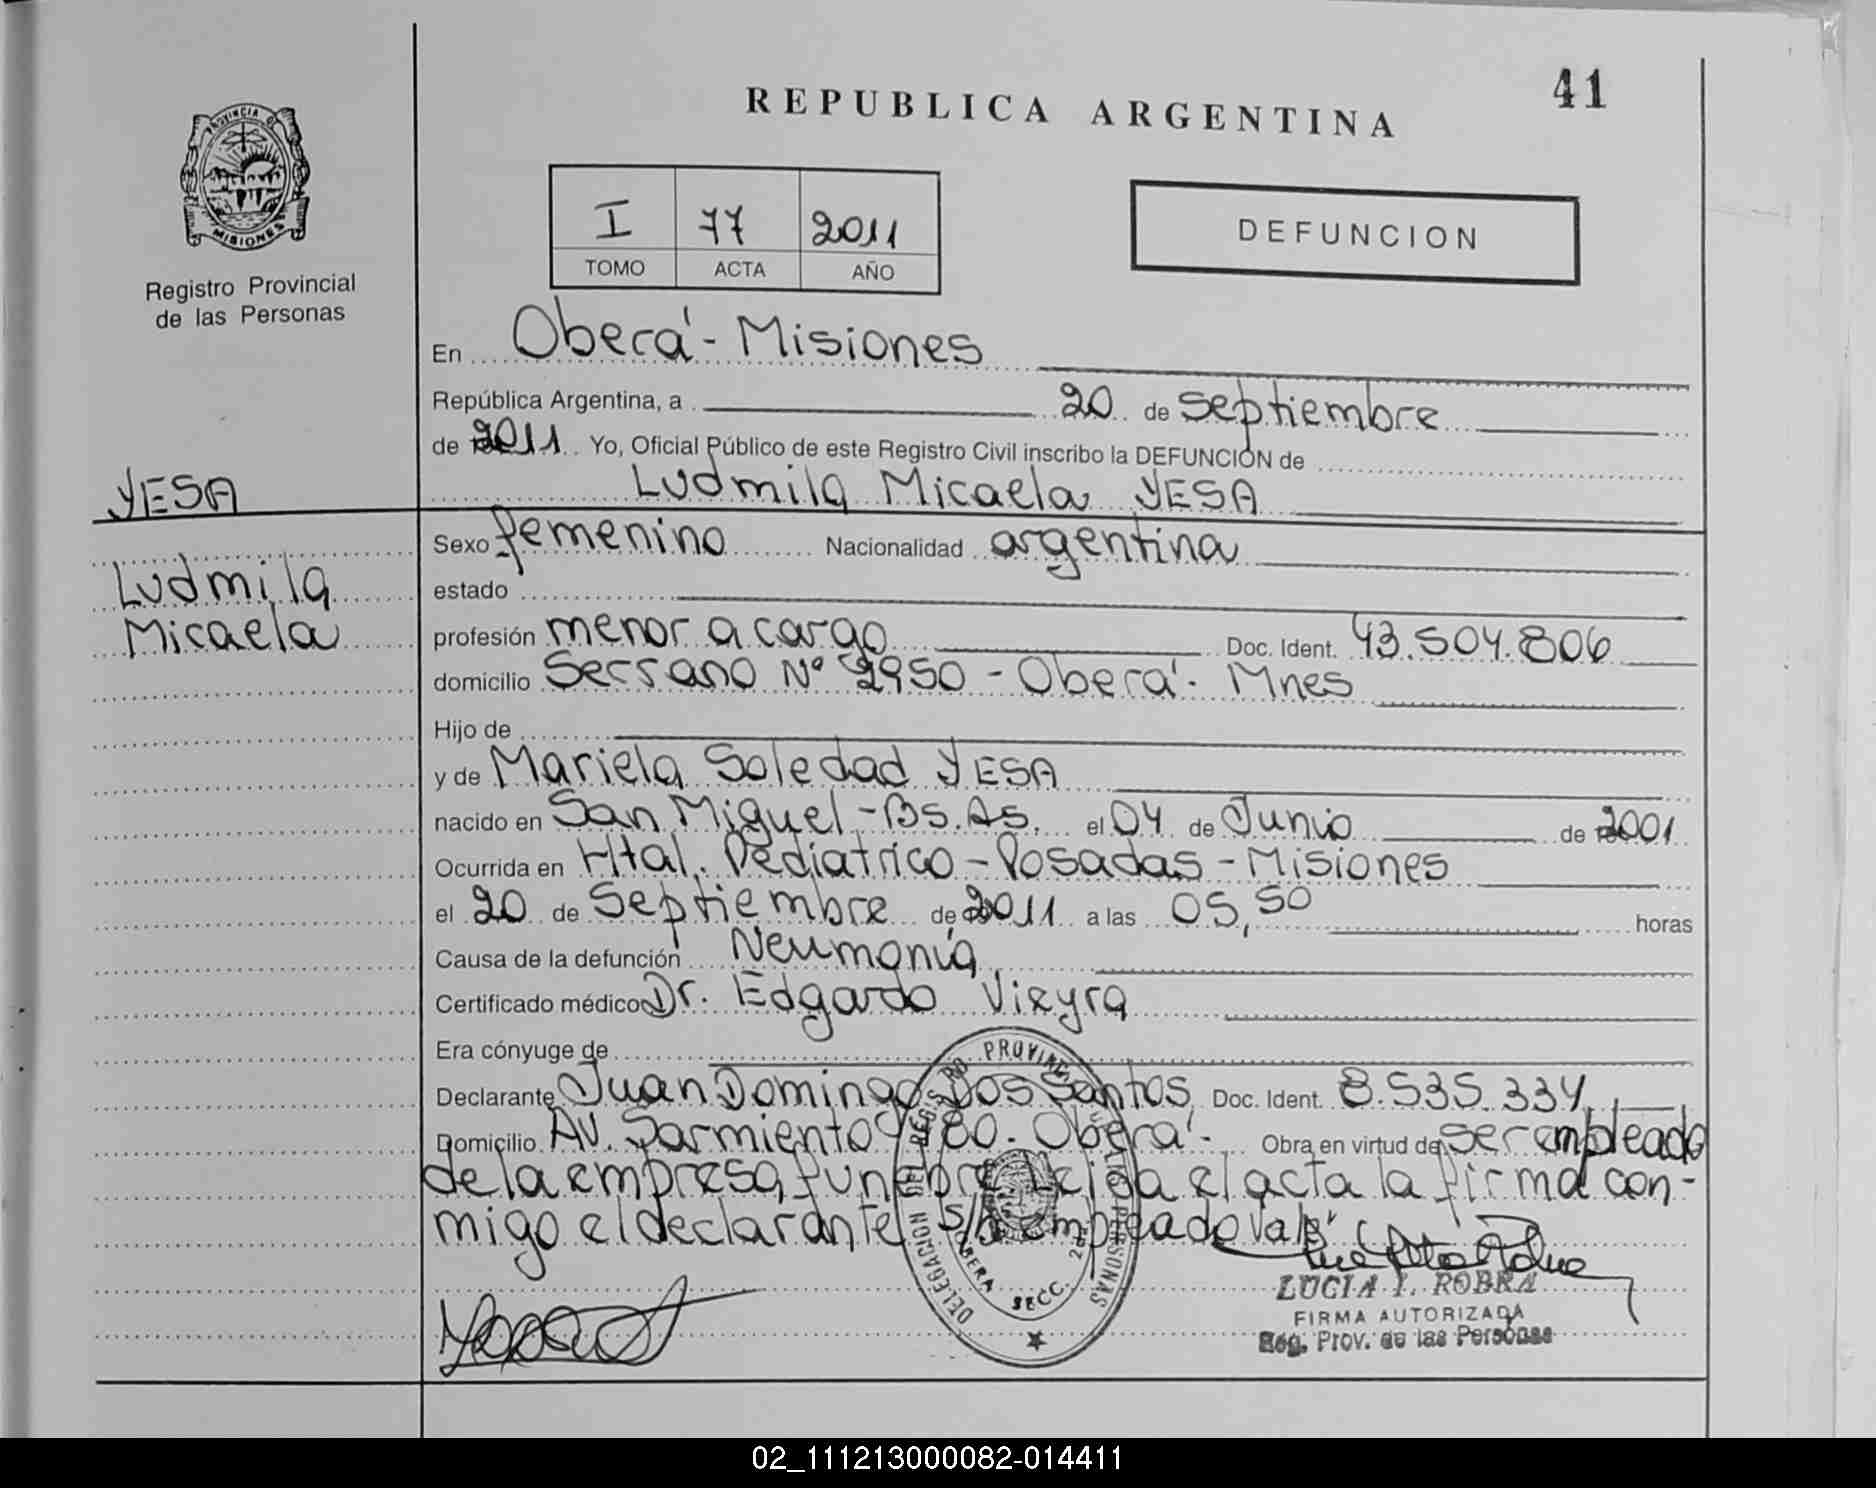 41
REPUBLICA ARGENTINA
PROVINCIA DE
MISIONES
Registro Provincial
de las Personas
I 77 2011
TOMO ACTA AÑO
DEFUNCION
En Oberá - Misiones
República Argentina, a 20 de Septiembre
de 2011 Yo, Oficial Público de este Registro Civil inscribo la DEFUNCION de
YESA
Ludmila Micaela YESA
Ludmila
Micaela
Sexo femenino Nacionalidad argentina
estado
profesión menor a cargo Doc. Ident. 43.504.806
domicilio Serrano Nº 2950 - Oberá - Mnes
Hijo de
y de Mariela Soledad YESA
nacido en San Miguel - Bs. As. el 04 de Junio de 2001
Ocurrida en Htal. Pediatrico - Posadas - Misiones
el 20 de Septiembre de 2011 a las 05,50 horas
Causa de la defunción Neumonía
Certificado médico Dr. Edgardo Vieyra
Era cónyuge de
Declarante Juan Domingo Dos Santos Doc. Ident. 8.535.334
Domicilio Av. Sarmiento 980 - Oberá - Obra en virtud de ser empleado
de la empresa funebre Leida el acta la firma con-
migo el declarante S/b empleado Vale
DELEGACION DEL REGISTRO PROVINCIAL DE LAS PERSONAS
OBERA SECC.
LUCIA I. ROBRA
FIRMA AUTORIZADA
Reg. Prov. de las Personas
02_111213000082-014411